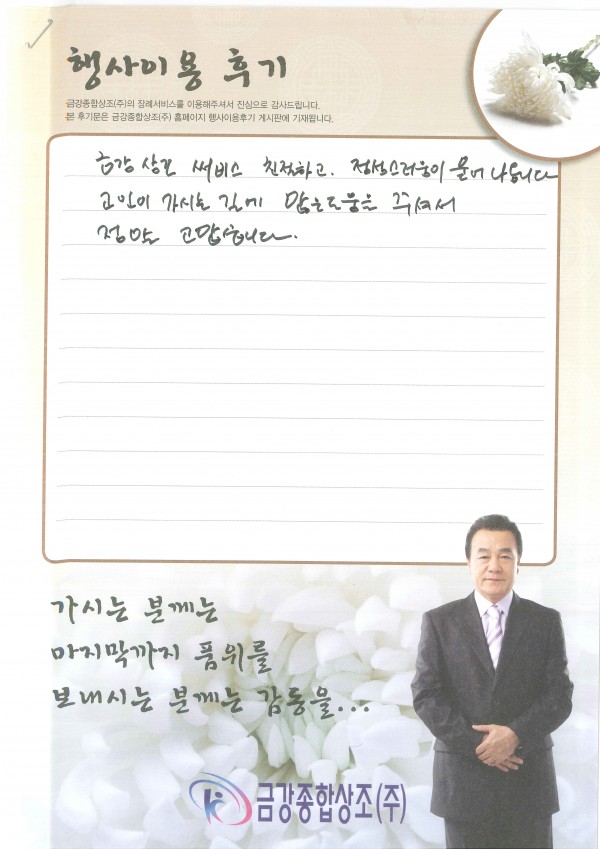 행사이용 후기
금강종합상조(주)의 장례서비스를 이용해주셔서 진심으로 감사드립니다.
본 후기문은 금강종합상조(주) 홈페이지 행사이용후기 게시판에 기재됩니다.
금강 상조 써비스 친절하고. 정성스러움이 묻어 나옵니다
고인이 가시는 길에 많은도움을 주셔서
정말 고맙습니다.
가시는 분께는
마지막까지 품위를
보내시는 분께는 감동을...
금강종합상조(주)